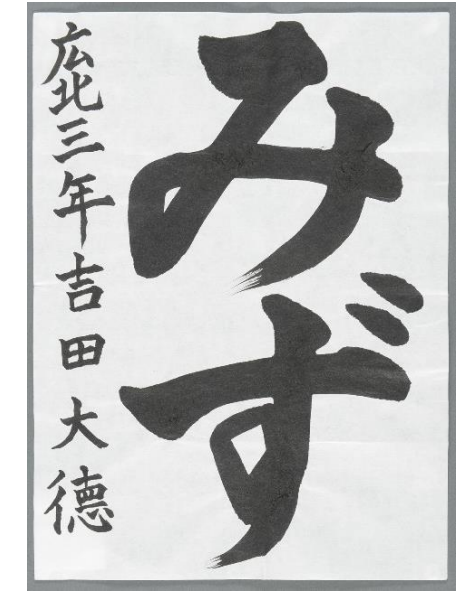 みず
広北三年吉田大徳